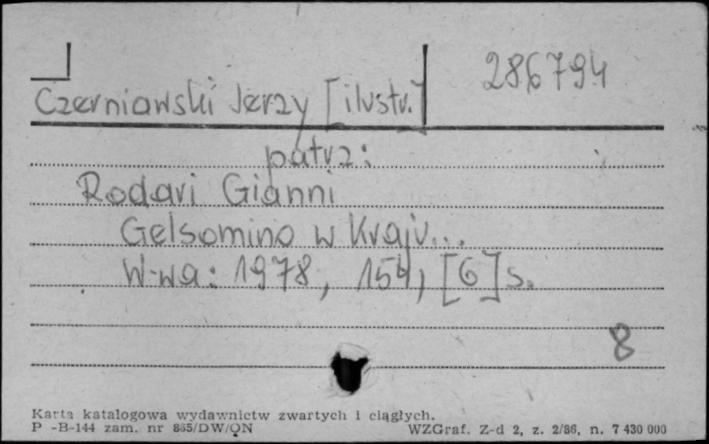 286794
Czerniawski Jerzy [ilustr.]
patrz:
Rodari Gianni
Gelsomino w Kraju...
W-wa: 1978, 154, [6] s.
8
Karta katalogowa wydawnictw zwartych i ciągłych.
P -B-144 zam. nr 865/DW/ON WZGraf. Z-d 2, z. 2/86, n. 7 430 000